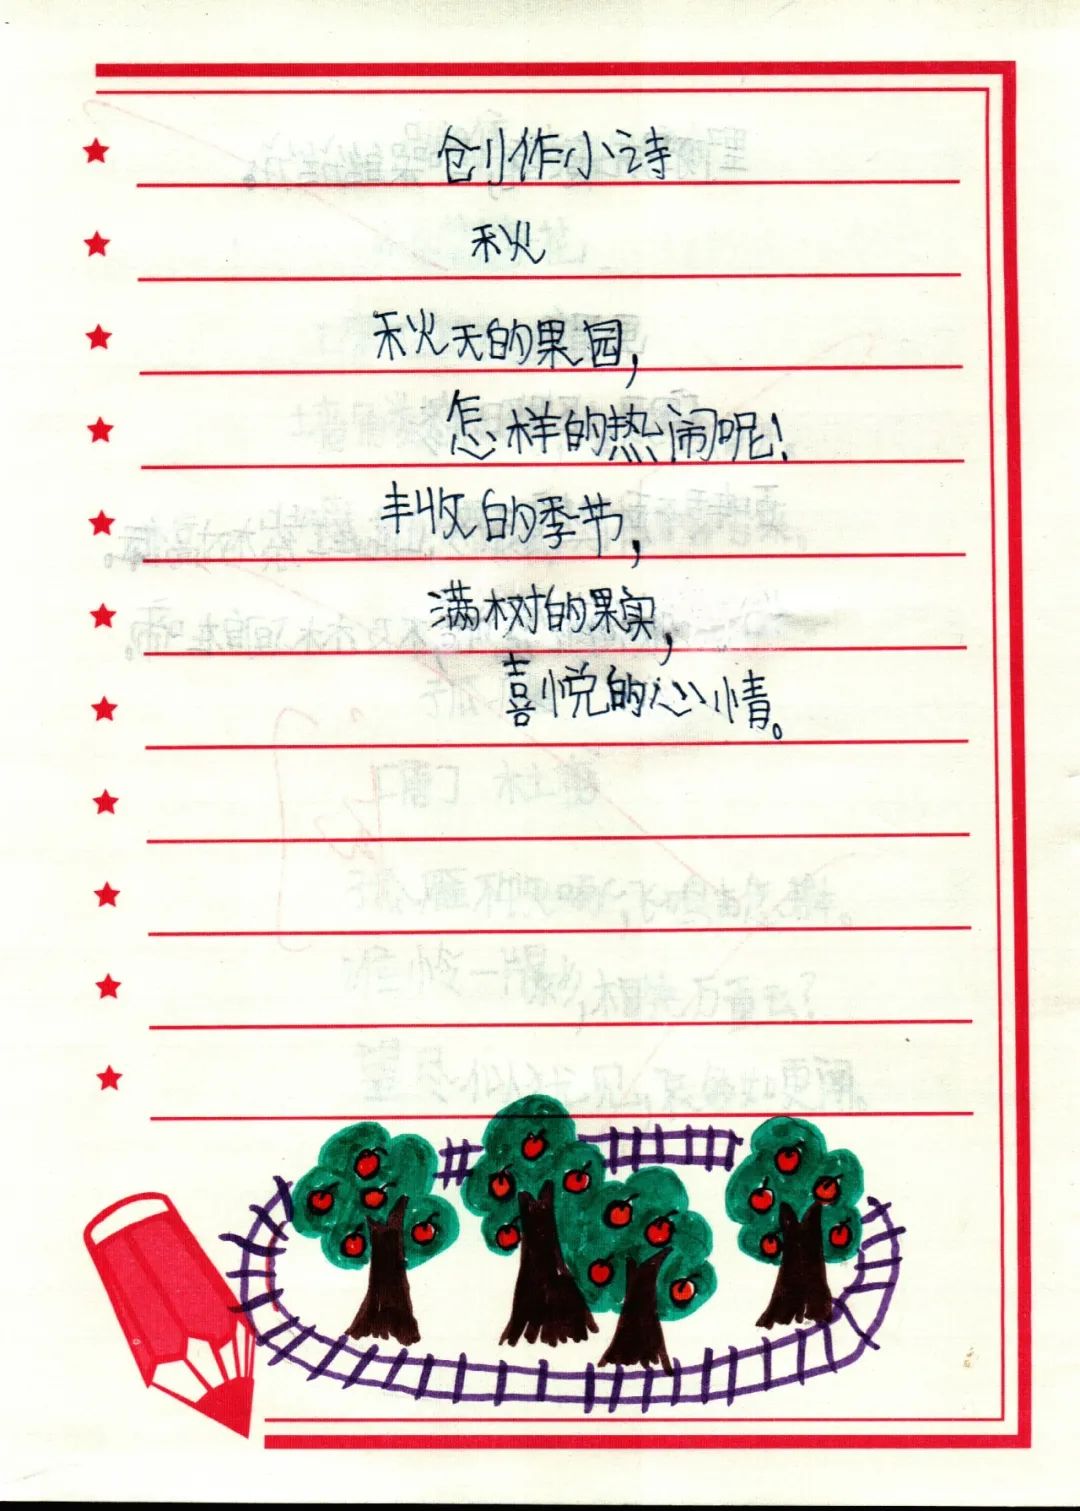 创作小诗
秋
秋天的果园，
怎样的热闹呢！
丰收的季节，
满树的果实，
喜悦的心情。